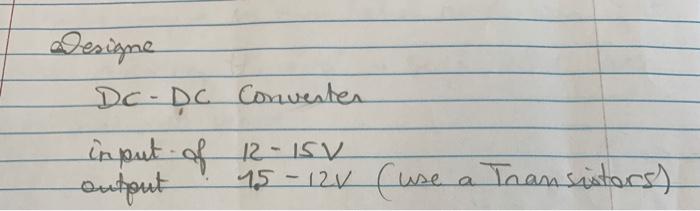 Designe
DC-DC Converter
input of 12-15V
output 15-12V (use a Transistors)